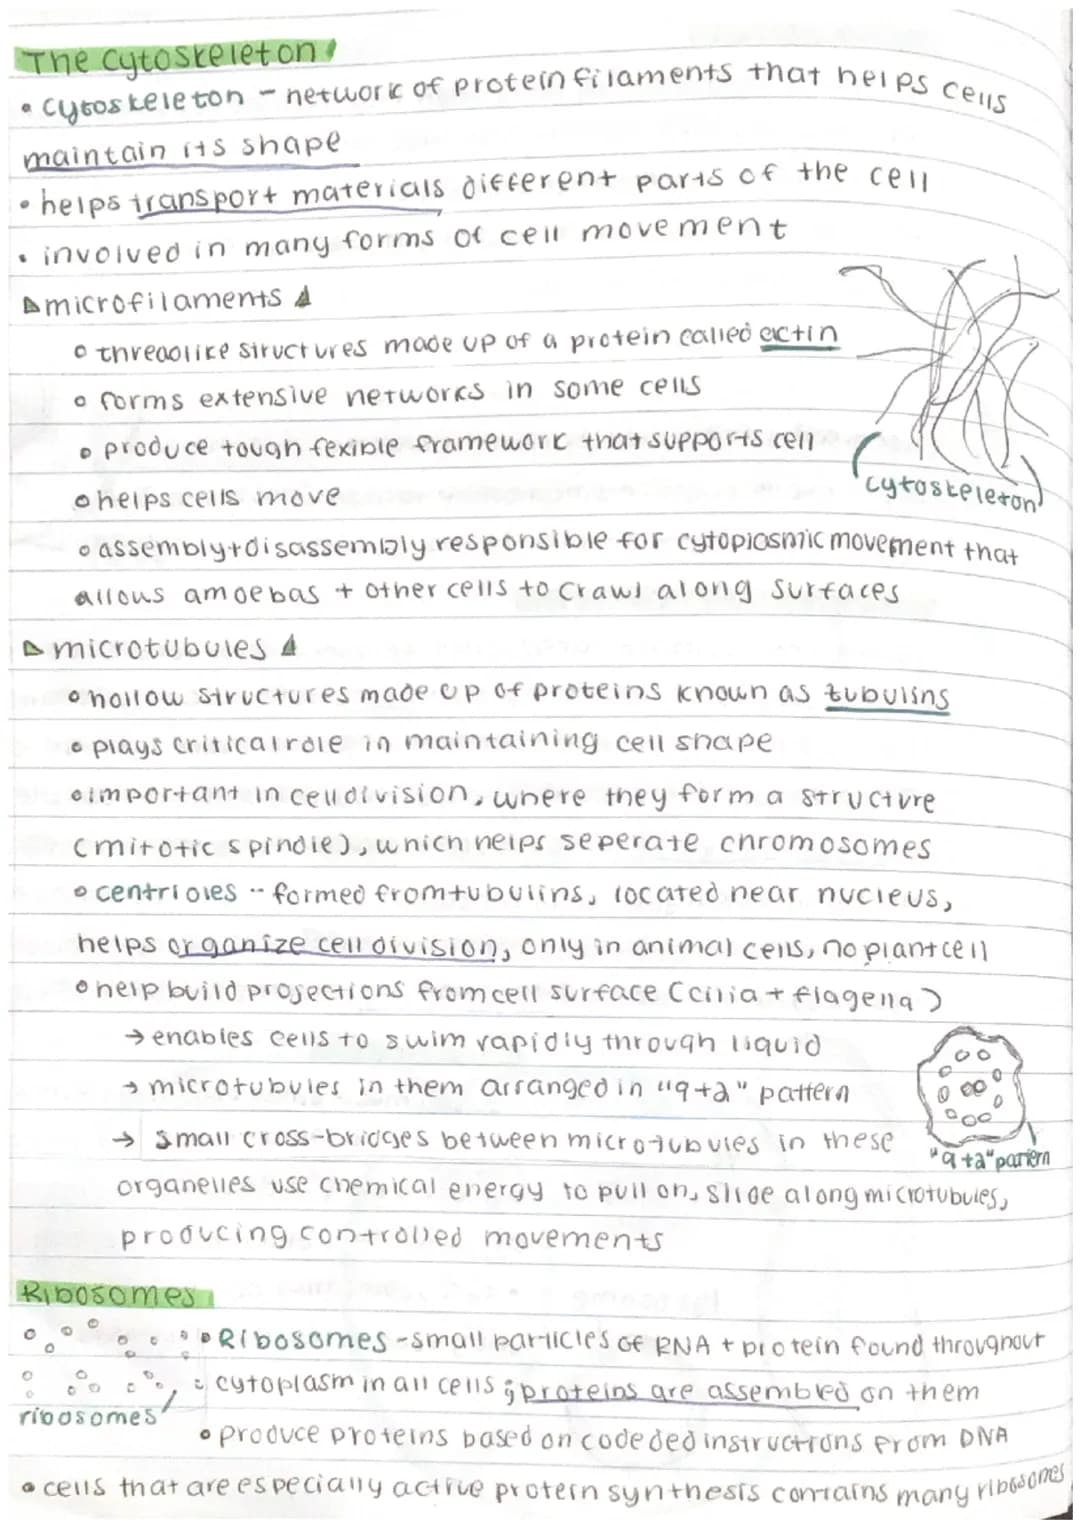 The Cytoskeleton
• cytoskeleton - network of protein filaments that helps cells
maintain its shape
• helps transport materials different parts of the cell
• involved in many forms of cell movement
microfilaments
◦ threadlike structures made up of a protein called actin
◦ forms extensive networks in some cells
◦ produce tough fexible framework that supports cell
◦ helps cells move
cytoskeleton
◦ assembly + disassembly responsible for cytoplasmic movement that
allows amoebas + other cells to crawl along surfaces
microtubules
◦ hollow structures made up of proteins known as tubulins
◦ plays critical role in maintaining cell shape
◦ important in cell division, where they form a structure
(mitotic spindle), which helps seperate chromosomes
◦ centrioles -- formed from tubulins, located near nucleus,
helps organize cell division, only in animal cells, no plant cell
◦ help build projections from cell surface (cilia + flagella)
→ enables cells to swim rapidly through liquid
→ microtubules in them arranged in "9+2" pattern
→ small cross-bridges between microtubules in these
"9+2" pattern
organelles use chemical energy to pull on, slide along microtubules,
producing controlled movements
Ribosomes
• Ribosomes - small particles of RNA + protein found throughout
cytoplasm in all cells ; proteins are assembled on them
ribosomes
• produce proteins based on codeded instructions from DNA
• cells that are especially active protein synthesis contains many ribosomes